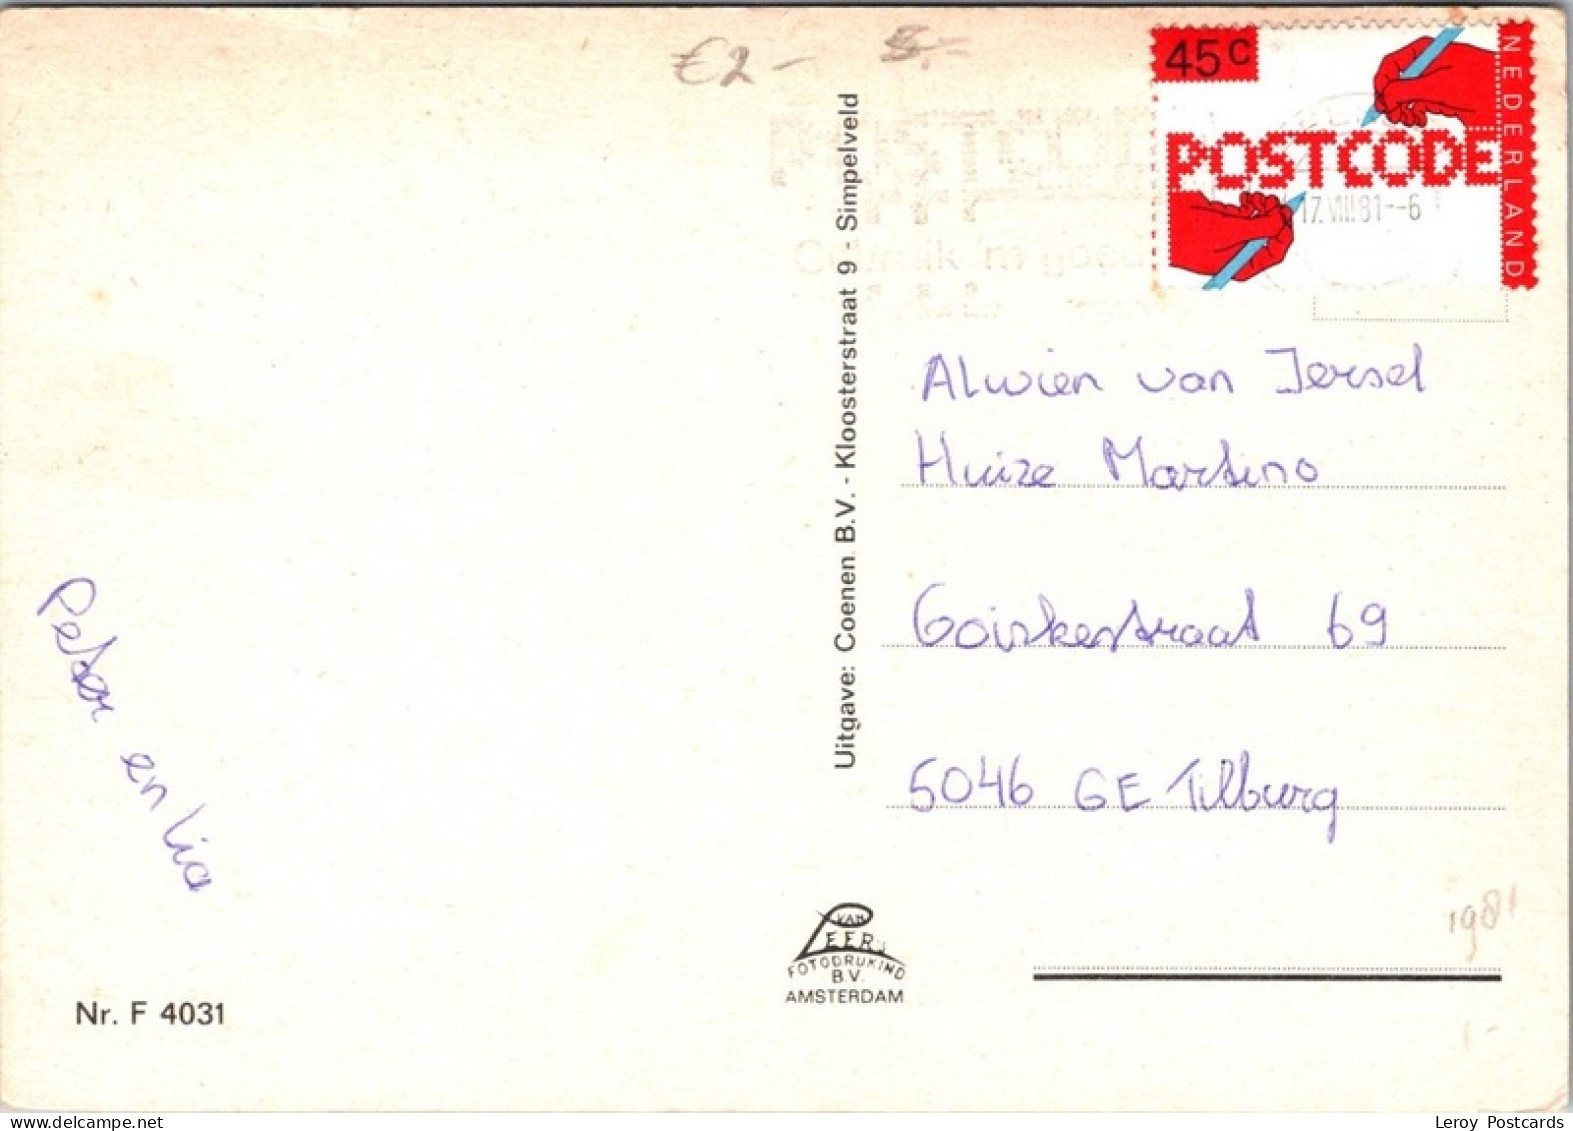 €2 -
5.-
45c
NEDERLAND
POSTCODE
POSTCODE
17.VIII.81--6
Gebruik 'm goed
Uitgave: Coenen B.V. - Kloosterstraat 9 - Simpelveld
Alwien van Iersel
Huize Martino
Goirkestraat 69
5046 GE Tilburg
Peter en Lia
VAN
LEER
FOTODRUKIND
B.V.
AMSTERDAM
1981
Nr. F 4031
delcampe.net
Leroy Postcards